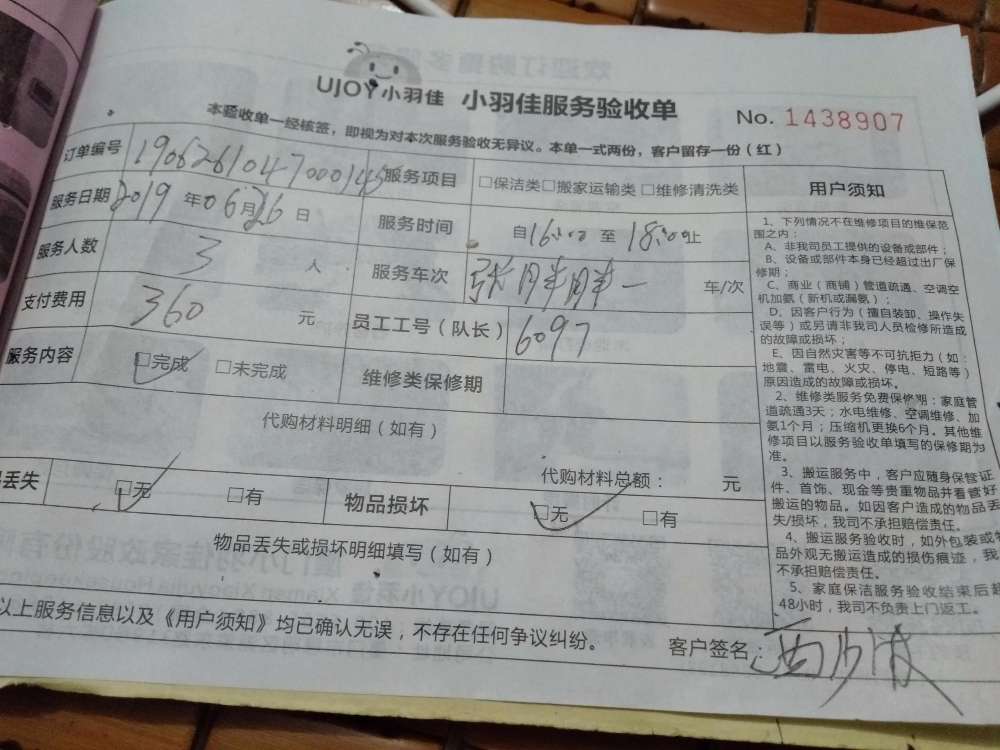 UJOY小羽佳 小羽佳服务验收单
No. 1438907
本验收单一经核签，即视为对本次服务验收无异议。本单一式两份，客户留存一份（红）
订单编号 190626104700014 服务项目 □保洁类□搬家运输类 □维修清洗类
服务日期 2019年06月26日 服务时间 自16:00 至 18:00止
服务人数 3 人 服务车次 一 车/次
支付费用 360 元 员工工号（队长） 6097
服务内容 □完成 □未完成 维修类保修期
代购材料明细（如有）
代购材料总额： 元
丢失 □无 □有 物品损坏 □无 □有
物品丢失或损坏明细填写（如有）
以上服务信息以及《用户须知》均已确认无误，不存在任何争议纠纷。
客户签名：
用户须知
1、下列情况不在维修项目的维保范
围之内：
A、非我司员工提供的设备或部件；
B、设备或部件本身已经超过出厂保
修期；
C、商业（商铺）管道疏通、空调空
机加氨（新机或漏氨）；
D、因客户行为（擅自装卸、操作失
误等）或另请非我司人员检修所造成
的故障或损坏；
E、因自然灾害等不可抗拒力（如：
地震、雷电、火灾、停电、短路等）
原因造成的故障或损坏。
2、维修类服务免费保修期：家庭管
道疏通3天；水电维修、空调维修、加
氨1个月；压缩机更换6个月。其他维
修项目以服务验收单填写的保修期为
准。
3、搬运服务中，客户应随身保管证
件、首饰、现金等贵重物品并看管好
搬运的物品。如因客户造成的物品丢
失/损坏，我司不承担赔偿责任。
4、搬运服务验收时，如外包装或物
品外观无搬运造成的损伤痕迹，我
不承担赔偿责任。
5、家庭保洁服务验收结束后超
48小时，我司不负责上门返工。